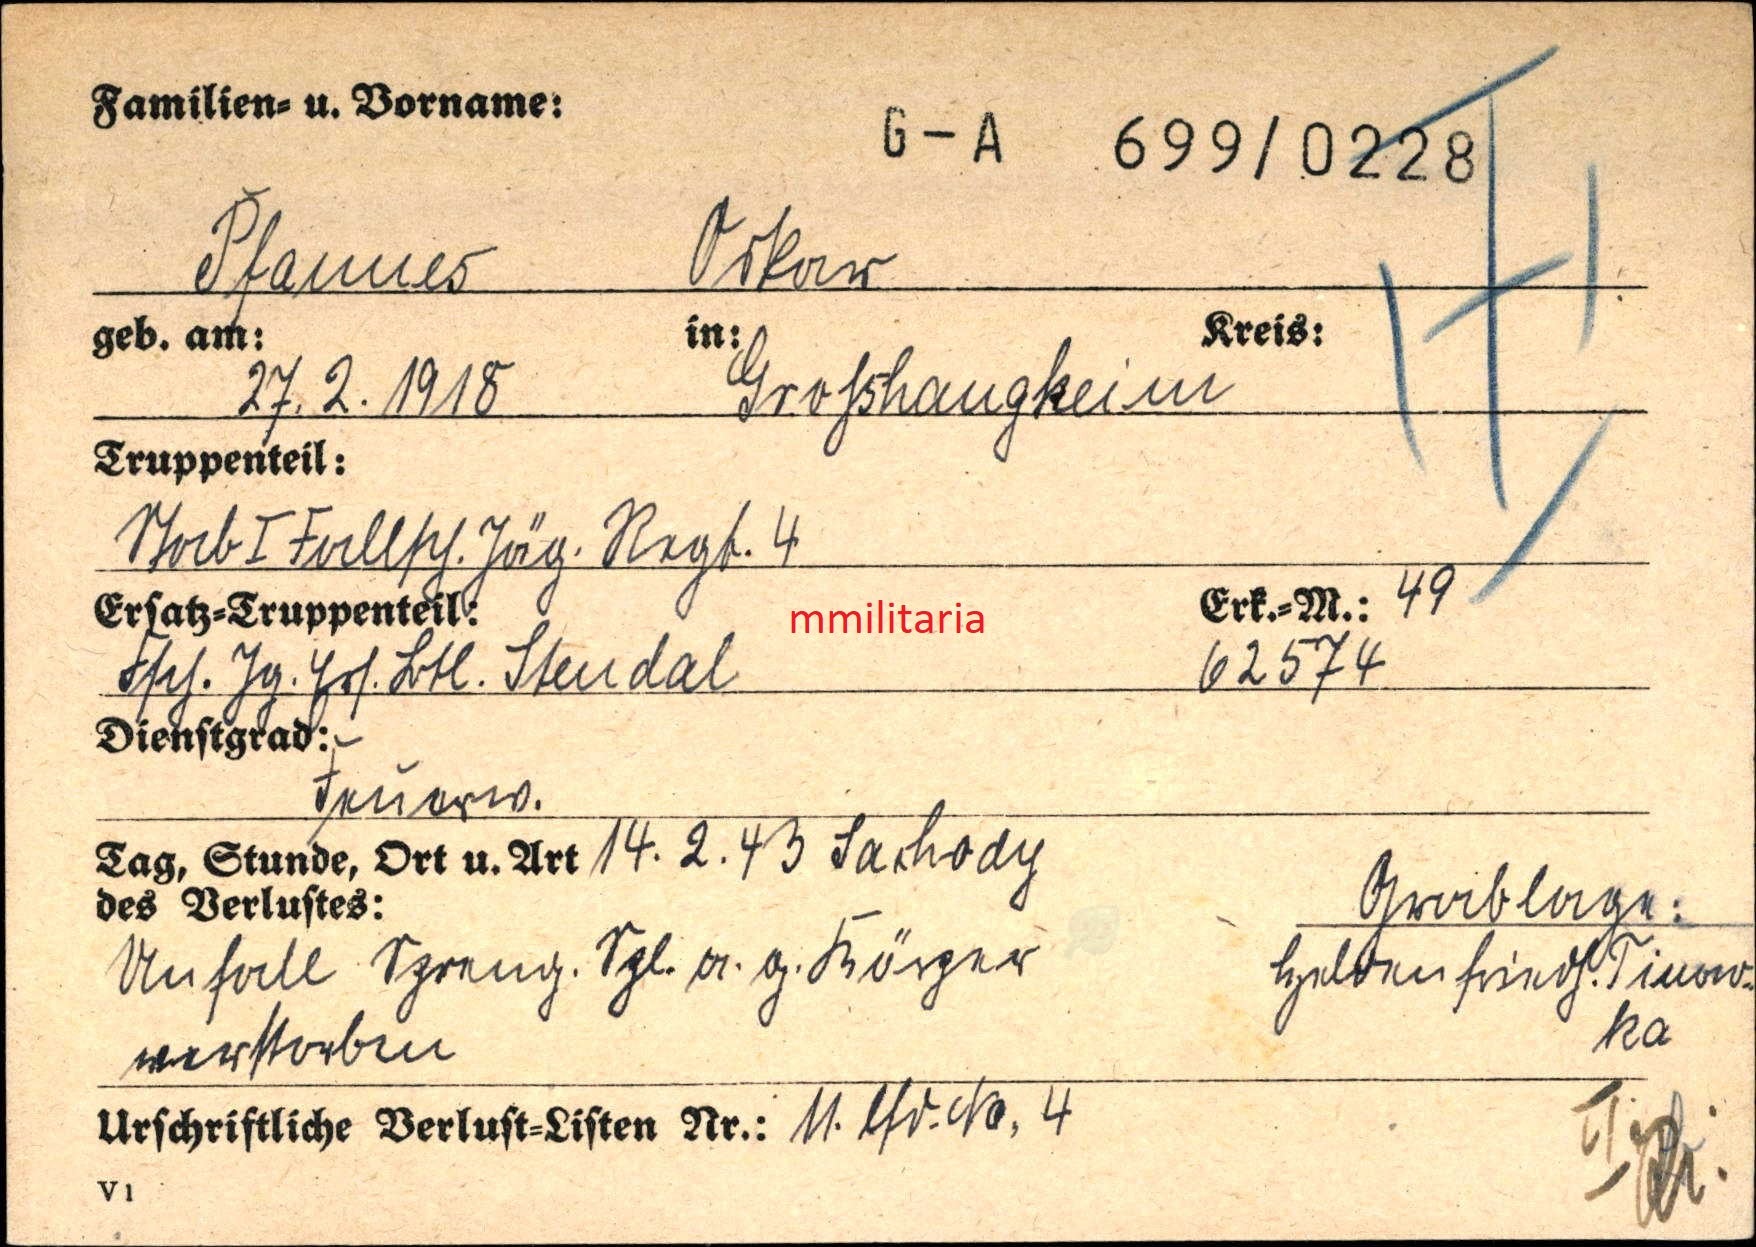 Familien- u. Vorname:
G-A 699/0228
Pfannes Oskar
geb. am: in: Kreis:
27. 2. 1918 Großhangheim
Truppenteil:
Stab I Fallsch. Jäg. Regt. 4
Ersatz-Truppenteil: Erk.-M.: 49
mmilitaria
Fsch. Jg. Ers. Btl. Stendal 62574
Dienstgrad:
Feuerw.
Tag, Stunde, Ort u. Art 14. 2. 43
des Verlustes:
Grablage:
Unfall Spreng. Spl. a. g. Körper
Heldenfriedh. Tinow-
ka
verstorben
Urschriftliche Verlust-Listen Nr.: 11. lfd. No. 4
V 1